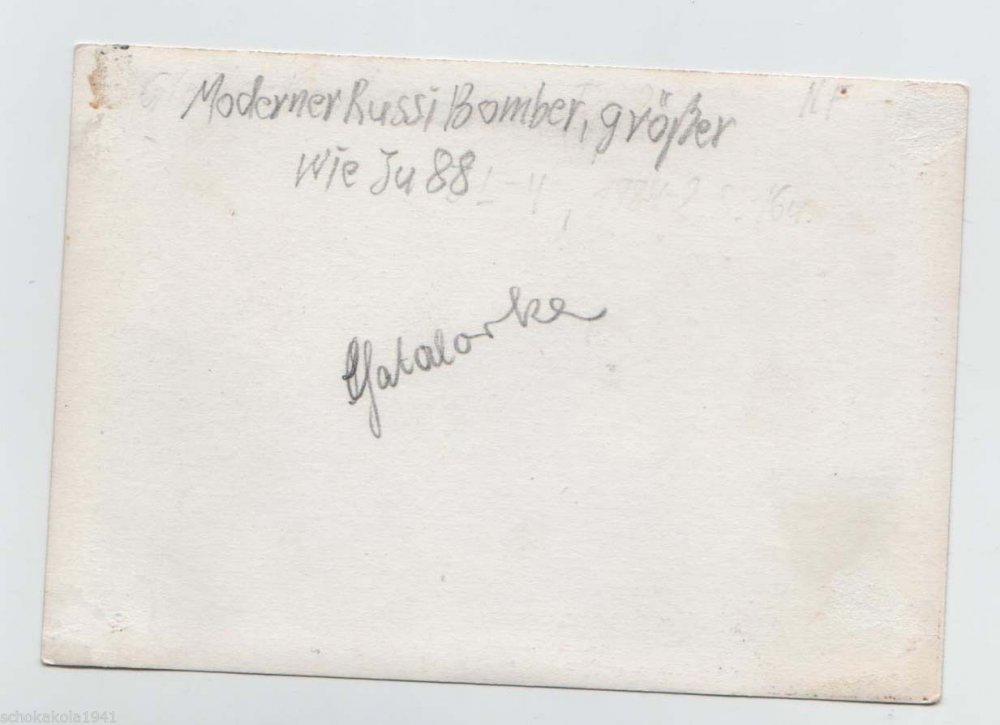 Moderner Russi Bomber, größer
wie Ju 88
schokakola1941